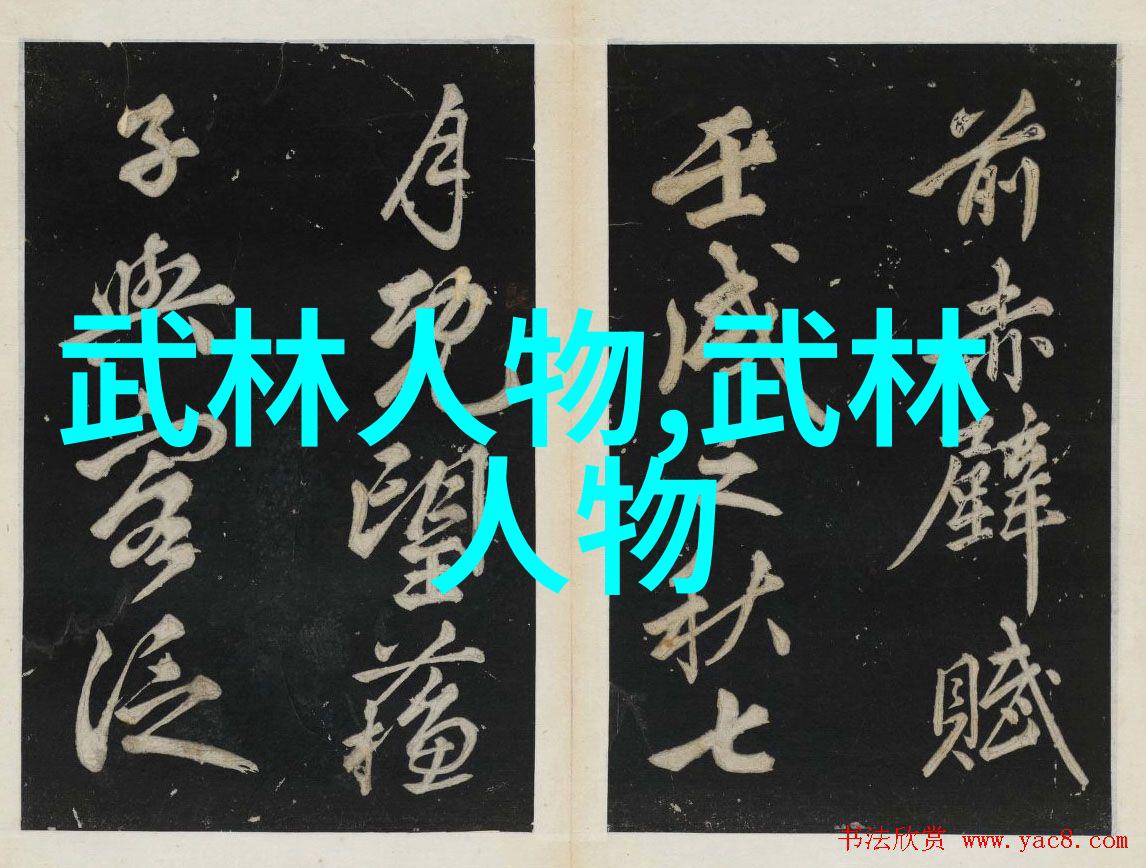 前赤壁賦
壬戌之秋七
月既望蘇
子與客泛
武林人物,武林
人物
书法欣赏 www.yac8.com